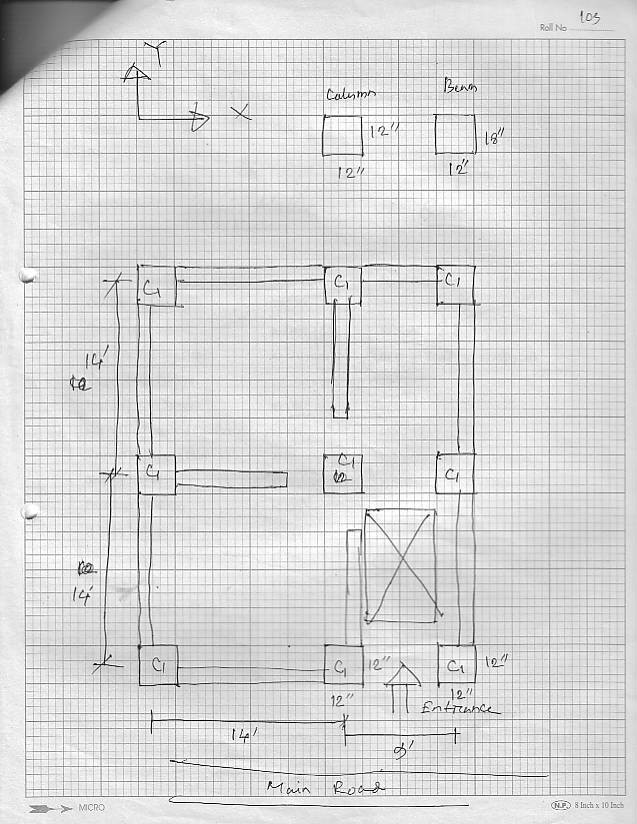 Roll No 103
Y
X
Column
12"
12"
Beam
18"
12"
C1
C1
C1
14'
C1
C1
C1
14'
C1
C1
12"
12"
C1
12"
12"
Entrance
14'
Main Road
MICRO
N.P. 8 Inch x 10 Inch